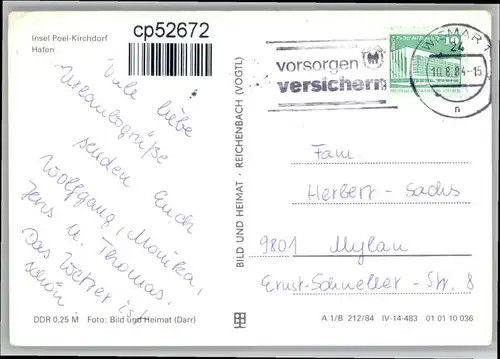 Insel Poel-Kirchdorf
Hafen
cp52672
vorsorgen
versichern
WISMAR 1
24
10.8.84-15
n
10
Viele liebe
Urlaubsgrüße
senden Euch
Wolfgang, Monika,
Jens u. Thomas.
Das Wetter ist
schön.
BILD UND HEIMAT · REICHENBACH (VOGTL)
Fam
Herbert - Sachs
9801 Mylau
Ernst-Schneller-Str. 8
DDR 0,25 M Foto: Bild und Heimat (Darr)
A 1/B 212/84 IV-14-483 01 01 10 036